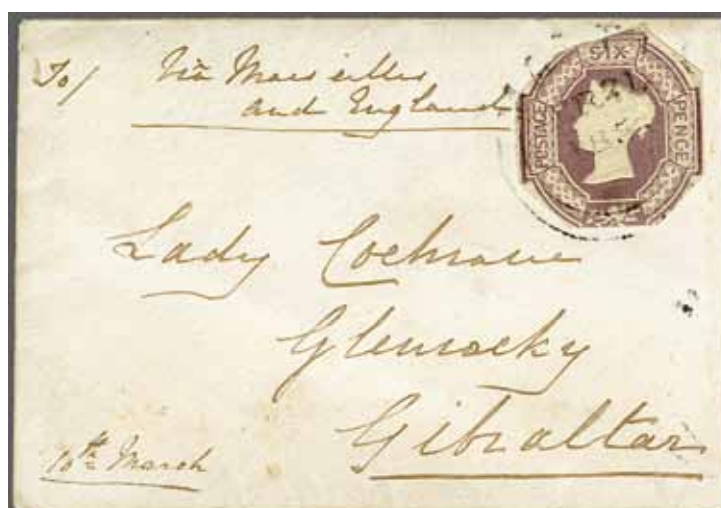 To/ Via Marseilles
and England
SIX
POSTAGE
PENCE
Lady Cochrane
Glenrocky
Gibraltar
10th March